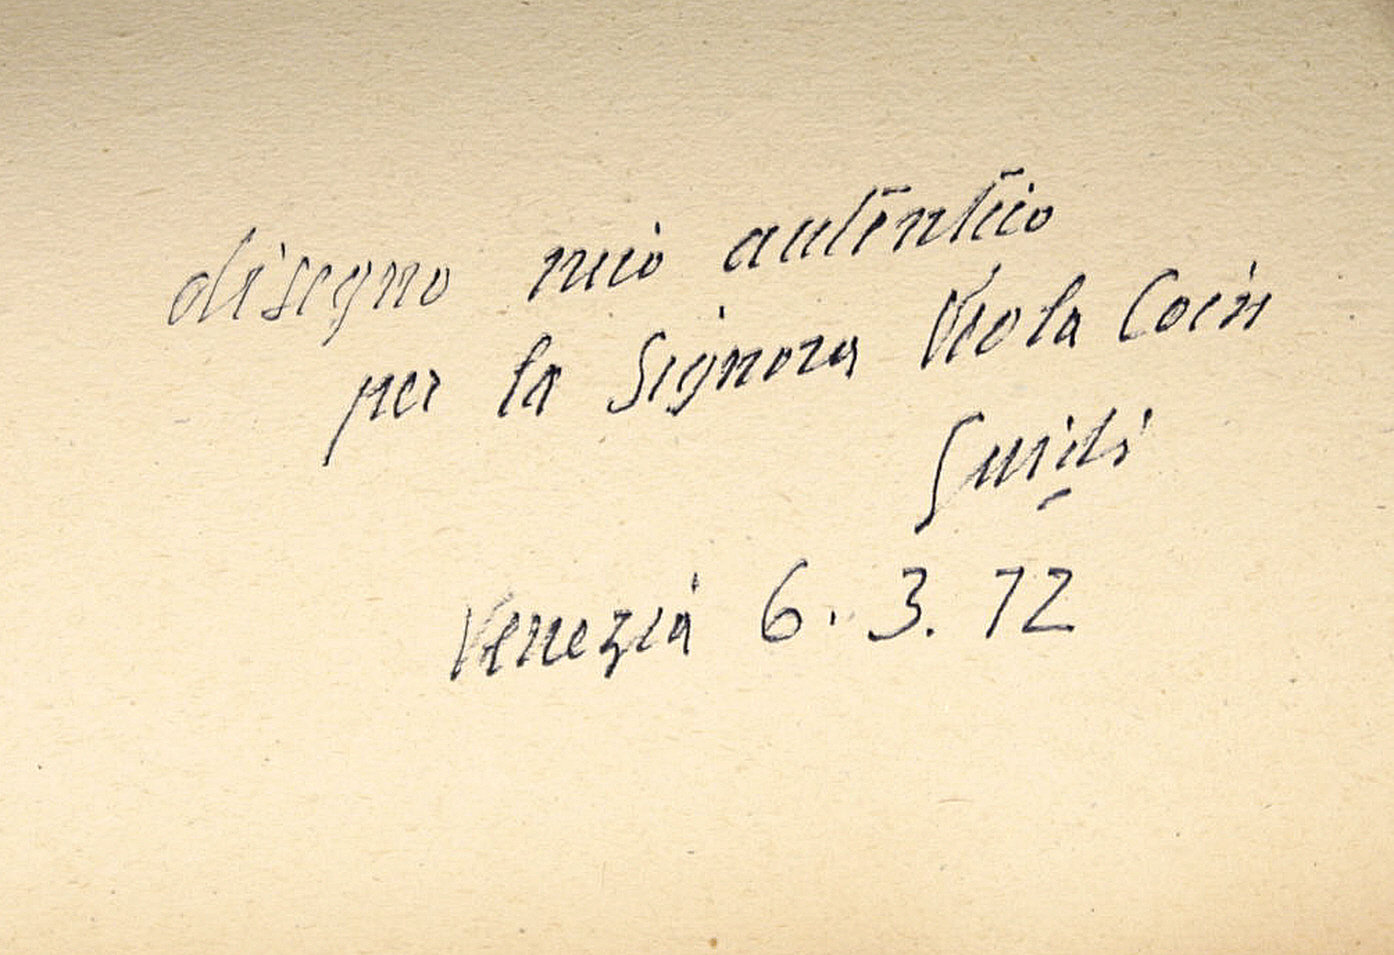 disegno mio autentico
per la Signora Viola Coin
Guidi
Venezia 6.3.72